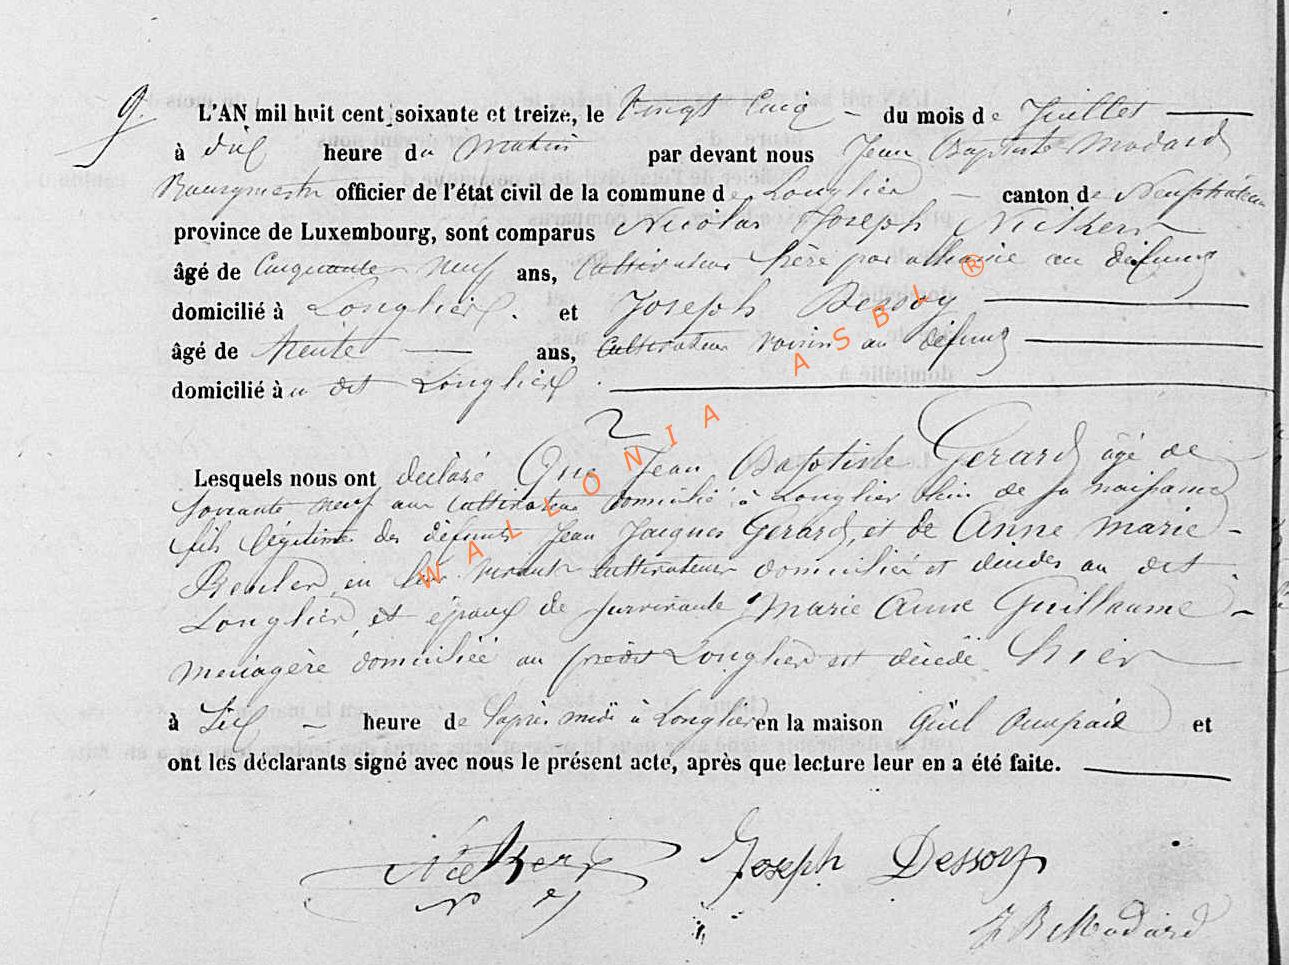 9.
L'AN mil huit cent soixante et treize, le Vingt Cinq du mois de Juillet
à dix heure du matin par devant nous Jean Baptiste Modard
Bourgmestre officier de l'état civil de la commune de Longlier canton de Neufchâteau
province de Luxembourg, sont comparus Nicolas Joseph Nickers
âgé de Cinquante neuf ans, Cultivateur frère par alliance au défunt
domicilié à Longlier. et Joseph Dessoy
âgé de trente ans, Cultivateur voisin au défunt
domicilié au dit Longlier.
Lesquels nous ont déclaré Que Jean Baptiste Gerard âgé de
soixante neuf ans cultivateur domicilié à Longlier lieu de sa naissance
fils légitime des défunts Jean Jacques Gerard, et de Anne Marie
en leur vivant cultivateurs domiciliés et décédés au dit
Longlier, et époux de survivante Marie Anne Guillaume
menagère domiciliée au prédit Longlier est décédé hier
à six heure de l'après midi à Longlier en la maison Qu'il occupait et
ont les déclarants signé avec nous le présent acte, après que lecture leur en a été faite.
Nickers Joseph Dessoy
J B Modard
WALLONIA ASBL ®